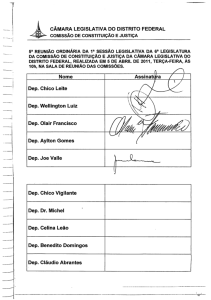 CÂMARA LEGISLATIVA DO DISTRITO FEDERAL
COMISSÃO DE CONSTITUIÇÃO E JUSTIÇA
5ª REUNIÃO ORDINÁRIA DA 1ª SESSÃO LEGISLATIVA DA 6ª LEGISLATURA
DA COMISSÃO DE CONSTITUIÇÃO E JUSTIÇA DA CÂMARA LEGISLATIVA DO
DISTRITO FEDERAL, REALIZADA EM 5 DE ABRIL DE 2011, TERÇA-FEIRA, ÀS
10H, NA SALA DE REUNIÃO DAS COMISSÕES.
Nome Assinatura
Dep. Chico Leite
Dep. Wellington Luiz
Dep. Olair Francisco
Dep. Aylton Gomes
Dep. Joe Valle
Dep. Chico Vigilante
Dep. Dr. Michel
Dep. Celina Leão
Dep. Benedito Domingos
Dep. Cláudio Abrantes